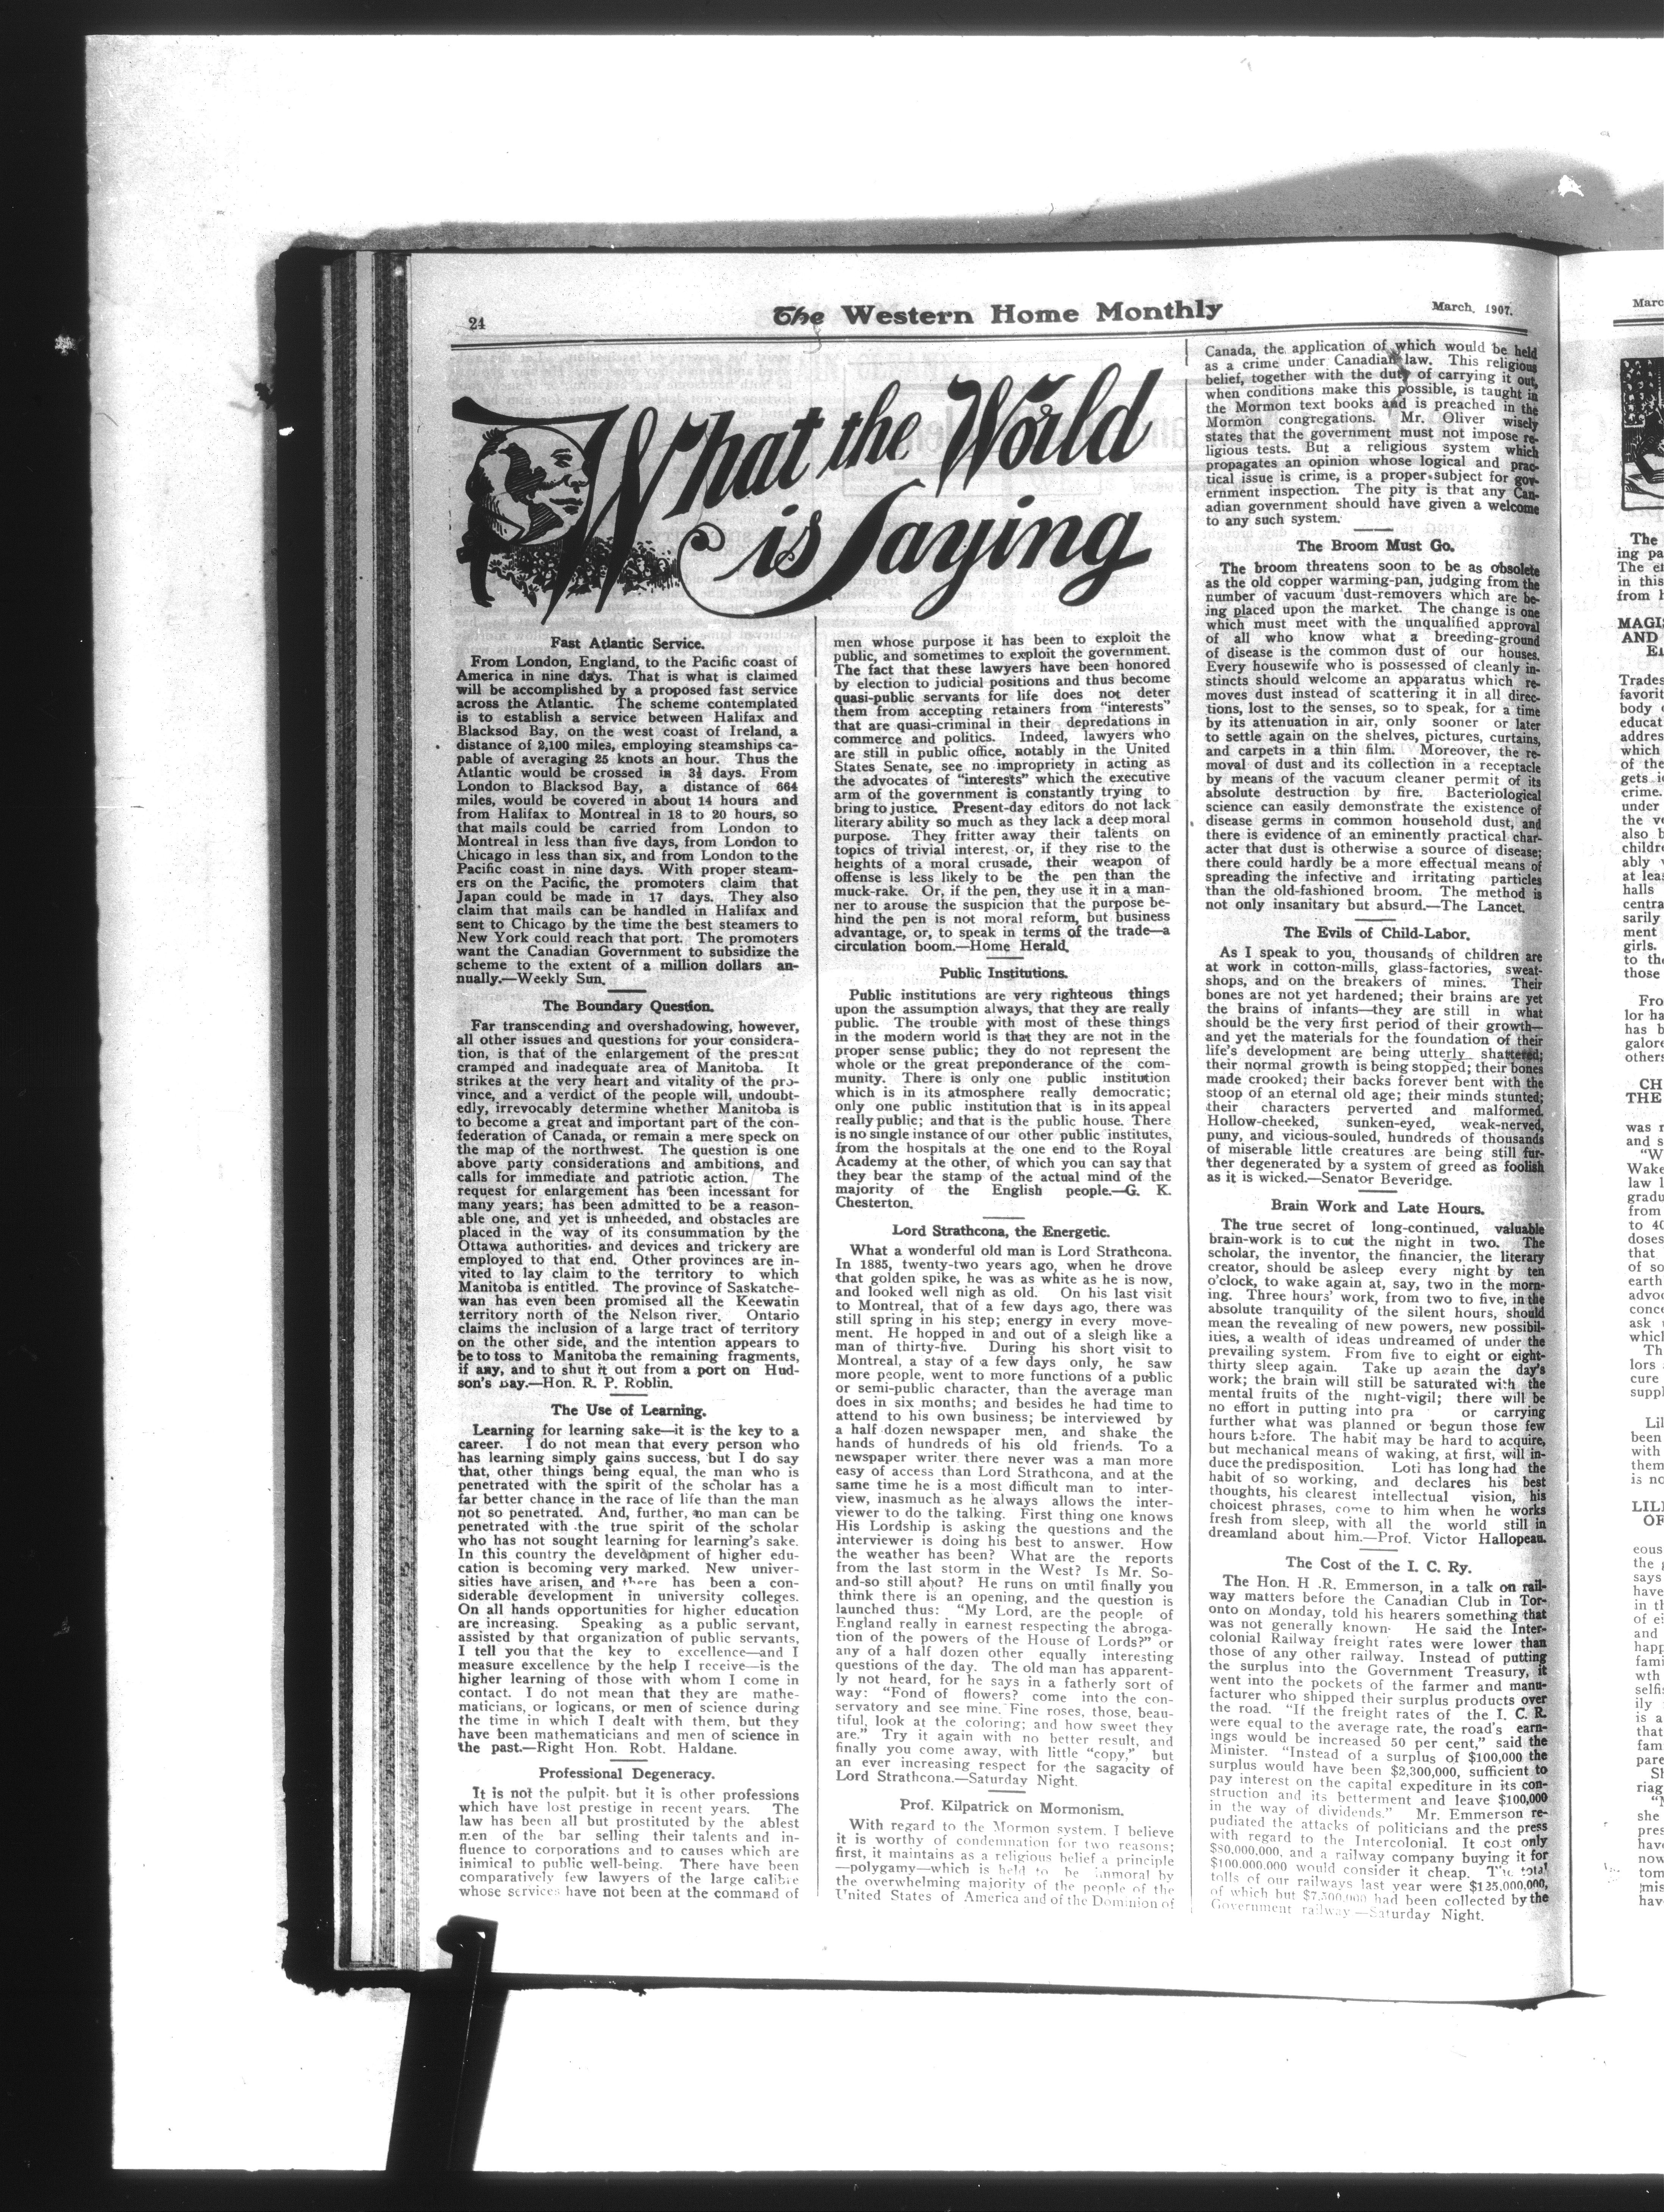 24
The Western Home Monthly
March, 1907.
What the World
is Saying
Fast Atlantic Service.
From London, England, to the Pacific coast of
America in nine days. That is what is claimed
will be accomplished by a proposed fast service
across the Atlantic. The scheme contemplated
is to establish a service between Halifax and
Blacksod Bay, on the west coast of Ireland, a
distance of 2,100 miles, employing steamships ca-
pable of averaging 25 knots an hour. Thus the
Atlantic would be crossed in 3½ days. From
London to Blacksod Bay, a distance of 664
miles, would be covered in about 14 hours and
from Halifax to Montreal in 18 to 20 hours, so
that mails could be carried from London to
Montreal in less than five days, from London to
Chicago in less than six, and from London to the
Pacific coast in nine days. With proper steam-
ers on the Pacific, the promoters claim that
Japan could be made in 17 days. They also
claim that mails can be handled in Halifax and
sent to Chicago by the time the best steamers to
New York could reach that port. The promoters
want the Canadian Government to subsidize the
scheme to the extent of a million dollars an-
nually.—Weekly Sun.
The Boundary Question.
Far transcending and overshadowing, however,
all other issues and questions for your considera-
tion, is that of the enlargement of the present
cramped and inadequate area of Manitoba. It
strikes at the very heart and vitality of the pro-
vince, and a verdict of the people will, undoubt-
edly, irrevocably determine whether Manitoba is
to become a great and important part of the con-
federation of Canada, or remain a mere speck on
the map of the northwest. The question is one
above party considerations and ambitions, and
calls for immediate and patriotic action. The
request for enlargement has been incessant for
many years; has been admitted to be a reason-
able one, and yet is unheeded, and obstacles are
placed in the way of its consummation by the
Ottawa authorities, and devices and trickery are
employed to that end. Other provinces are in-
vited to lay claim to the territory to which
Manitoba is entitled. The province of Saskatche-
wan has even been promised all the Keewatin
territory north of the Nelson river. Ontario
claims the inclusion of a large tract of territory
on the other side, and the intention appears to
be to toss to Manitoba the remaining fragments,
if any, and to shut it out from a port on Hud-
son's Bay.—Hon. R. P. Roblin.
The Use of Learning.
Learning for learning sake—it is the key to a
career. I do not mean that every person who
has learning simply gains success, but I do say
that, other things being equal, the man who is
penetrated with the spirit of the scholar has a
far better chance in the race of life than the man
not so penetrated. And, further, no man can be
penetrated with the true spirit of the scholar
who has not sought learning for learning's sake.
In this country the development of higher edu-
cation is becoming very marked. New univer-
sities have arisen, and there has been a con-
siderable development in university colleges.
On all hands opportunities for higher education
are increasing. Speaking as a public servant,
assisted by that organization of public servants,
I tell you that the key to excellence—and I
measure excellence by the help I receive—is the
higher learning of those with whom I come in
contact. I do not mean that they are mathe-
maticians, or logicans, or men of science during
the time in which I dealt with them, but they
have been mathematicians and men of science in
the past.—Right Hon. Robt. Haldane.
Professional Degeneracy.
It is not the pulpit, but it is other professions
which have lost prestige in recent years. The
law has been all but prostituted by the ablest
men of the bar selling their talents and in-
fluence to corporations and to causes which are
inimical to public well-being. There have been
comparatively few lawyers of the large calibre
whose services have not been at the command of
men whose purpose it has been to exploit the
public, and sometimes to exploit the government.
The fact that these lawyers have been honored
by election to judicial positions and thus become
quasi-public servants for life does not deter
them from accepting retainers from "interests"
that are quasi-criminal in their depredations in
commerce and politics. Indeed, lawyers who
are still in public office, notably in the United
States Senate, see no impropriety in acting as
the advocates of "interests" which the executive
arm of the government is constantly trying to
bring to justice. Present-day editors do not lack
literary ability so much as they lack a deep moral
purpose. They fritter away their talents on
topics of trivial interest, or, if they rise to the
heights of a moral crusade, their weapon of
offense is less likely to be the pen than the
muck-rake. Or, if the pen, they use it in a man-
ner to arouse the suspicion that the purpose be-
hind the pen is not moral reform, but business
advantage, or, to speak in terms of the trade—a
circulation boom.—Home Herald.
Public Institutions.
Public institutions are very righteous things
upon the assumption always, that they are really
public. The trouble with most of these things
in the modern world is that they are not in the
proper sense public; they do not represent the
whole or the great preponderance of the com-
munity. There is only one public institution
which is in its atmosphere really democratic;
only one public institution that is in its appeal
really public; and that is the public house. There
is no single instance of our other public institutes,
from the hospitals at the one end to the Royal
Academy at the other, of which you can say that
they bear the stamp of the actual mind of the
majority of the English people.—G. K.
Chesterton.
Lord Strathcona, the Energetic.
What a wonderful old man is Lord Strathcona.
In 1885, twenty-two years ago, when he drove
that golden spike, he was as white as he is now,
and looked well nigh as old. On his last visit
to Montreal, that of a few days ago, there was
still spring in his step; energy in every move-
ment. He hopped in and out of a sleigh like a
man of thirty-five. During his short visit to
Montreal, a stay of a few days only, he saw
more people, went to more functions of a public
or semi-public character, than the average man
does in six months; and besides he had time to
attend to his own business; be interviewed by
a half dozen newspaper men, and shake the
hands of hundreds of his old friends. To a
newspaper writer there never was a man more
easy of access than Lord Strathcona, and at the
same time he is a most difficult man to inter-
view, inasmuch as he always allows the inter-
viewer to do the talking. First thing one knows
His Lordship is asking the questions and the
interviewer is doing his best to answer. How
the weather has been? What are the reports
from the last storm in the West? Is Mr. So-
and-so still about? He runs on until finally you
think there is an opening, and the question is
launched thus: "My Lord, are the people of
England really in earnest respecting the abroga-
tion of the powers of the House of Lords?" or
any of a half dozen other equally interesting
questions of the day. The old man has apparent-
ly not heard, for he says in a fatherly sort of
way: "Fond of flowers? come into the con-
servatory and see mine. Fine roses, those, beau-
tiful, look at the coloring; and how sweet they
are." Try it again with no better result, and
finally you come away, with little "copy," but
an ever increasing respect for the sagacity of
Lord Strathcona.—Saturday Night.
Prof. Kilpatrick on Mormonism.
With regard to the Mormon system, I believe
it is worthy of condemnation for two reasons;
first, it maintains as a religious belief a principle
—polygamy—which is held to be immoral by
the overwhelming majority of the people of the
United States of America and of the Dominion of
Canada, the application of which would be held
as a crime under Canadian law. This religious
belief, together with the duty of carrying it out,
when conditions make this possible, is taught in
the Mormon text books and is preached in the
Mormon congregations. Mr. Oliver wisely
states that the government must not impose re-
ligious tests. But a religious system which
propagates an opinion whose logical and prac-
tical issue is crime, is a proper subject for gov-
ernment inspection. The pity is that any Can-
adian government should have given a welcome
to any such system.
The Broom Must Go.
The broom threatens soon to be as obsolete
as the old copper warming-pan, judging from the
number of vacuum dust-removers which are be-
ing placed upon the market. The change is one
which must meet with the unqualified approval
of all who know what a breeding-ground
of disease is the common dust of our houses.
Every housewife who is possessed of cleanly in-
stincts should welcome an apparatus which re-
moves dust instead of scattering it in all direc-
tions, lost to the senses, so to speak, for a time
by its attenuation in air, only sooner or later
to settle again on the shelves, pictures, curtains,
and carpets in a thin film. Moreover, the re-
moval of dust and its collection in a receptacle
by means of the vacuum cleaner permit of its
absolute destruction by fire. Bacteriological
science can easily demonstrate the existence of
disease germs in common household dust, and
there is evidence of an eminently practical char-
acter that dust is otherwise a source of disease;
there could hardly be a more effectual means of
spreading the infective and irritating particles
than the old-fashioned broom. The method is
not only insanitary but absurd.—The Lancet.
The Evils of Child-Labor.
As I speak to you, thousands of children are
at work in cotton-mills, glass-factories, sweat-
shops, and on the breakers of mines. Their
bones are not yet hardened; their brains are yet
the brains of infants—they are still in what
should be the very first period of their growth—
and yet the materials for the foundation of their
life's development are being utterly shattered;
their normal growth is being stopped; their bones
made crooked; their backs forever bent with the
stoop of an eternal old age; their minds stunted;
their characters perverted and malformed.
Hollow-cheeked, sunken-eyed, weak-nerved,
puny, and vicious-souled, hundreds of thousands
of miserable little creatures are being still fur-
ther degenerated by a system of greed as foolish
as it is wicked.—Senator Beveridge.
Brain Work and Late Hours.
The true secret of long-continued, valuable
brain-work is to cut the night in two. The
scholar, the inventor, the financier, the literary
creator, should be asleep every night by ten
o'clock, to wake again at, say, two in the morn-
ing. Three hours' work, from two to five, in the
absolute tranquility of the silent hours, should
mean the revealing of new powers, new possibil-
ities, a wealth of ideas undreamed of under the
prevailing system. From five to eight or eight-
thirty sleep again. Take up again the day's
work; the brain will still be saturated with the
mental fruits of the night-vigil; there will be
no effort in putting into pra or carrying
further what was planned or begun those few
hours before. The habit may be hard to acquire,
but mechanical means of waking, at first, will in-
duce the predisposition. Loti has long had the
habit of so working, and declares his best
thoughts, his clearest intellectual vision, his
choicest phrases, come to him when he works
fresh from sleep, with all the world still in
dreamland about him.—Prof. Victor Hallopeau.
The Cost of the I. C. Ry.
The Hon. H .R. Emmerson, in a talk on rail-
way matters before the Canadian Club in Tor-
onto on Monday, told his hearers something that
was not generally known. He said the Inter-
colonial Railway freight rates were lower than
those of any other railway. Instead of putting
the surplus into the Government Treasury, it
went into the pockets of the farmer and manu-
facturer who shipped their surplus products over
the road. "If the freight rates of the I. C. R.
were equal to the average rate, the road's earn-
ings would be increased 50 per cent," said the
Minister. "Instead of a surplus of $100,000 the
surplus would have been $2,300,000, sufficient to
pay interest on the capital expediture in its con-
struction and its betterment and leave $100,000
in the way of dividends." Mr. Emmerson re-
pudiated the attacks of politicians and the press
with regard to the Intercolonial. It cost only
$80,000,000, and a railway company buying it for
$100,000,000 would consider it cheap. The total
tolls of our railways last year were $125,000,000,
of which but $7,500,000 had been collected by the
Government railway.—Saturday Night.